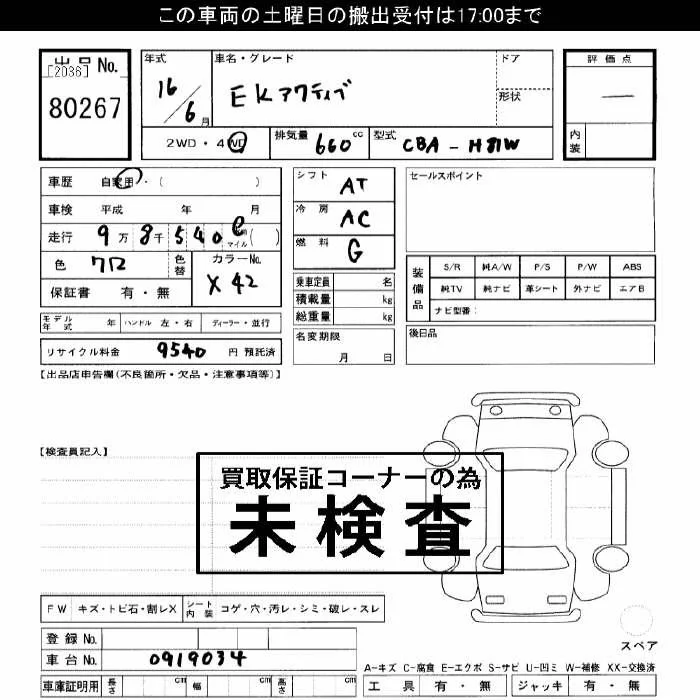 この車両の土曜日の搬出受付は17:00まで
出品No.
[2036]
80267
年式
16/6月
車名・グレード
EKアクティブ
ドア
形状
2WD・4WD
排気量 660cc
型式 CBA-H81W
評価点
―
内装
車歴 自家用・( )
車検 平成 年 月
走行 9万8千540
マイル( )
色 クロ
色替
カラーNo.
X42
保証書 有・無
シフト AT
冷房 AC
燃料 G
乗車定員 名
積載量 kg
総重量 kg
名変期限
月 日
セールスポイント
装備品
S/R 純A/W P/S P/W ABS
純TV 純ナビ 革シート 外ナビ エアB
ナビ型番:
後日品
モデル年式 年 ハンドル 左・右 ディーラー・並行
リサイクル料金 9540 円 預託済
【出品店申告欄(不良箇所・欠品・注意事項等)】
【検査員記入】
買取保証コーナーの為
未検査
FW キズ・トビ石・割レX シート内装 コゲ・穴・汚レ・シミ・破レ・スレ
登録No.
車台No. 0919034
車庫証明用 長さ cm 幅 cm 高さ cm
スペア
A-キズ C-腐食 E-エクボ S-サビ U-凹ミ W-補修 XX-交換済
工具 有・無 ジャッキ 有・無